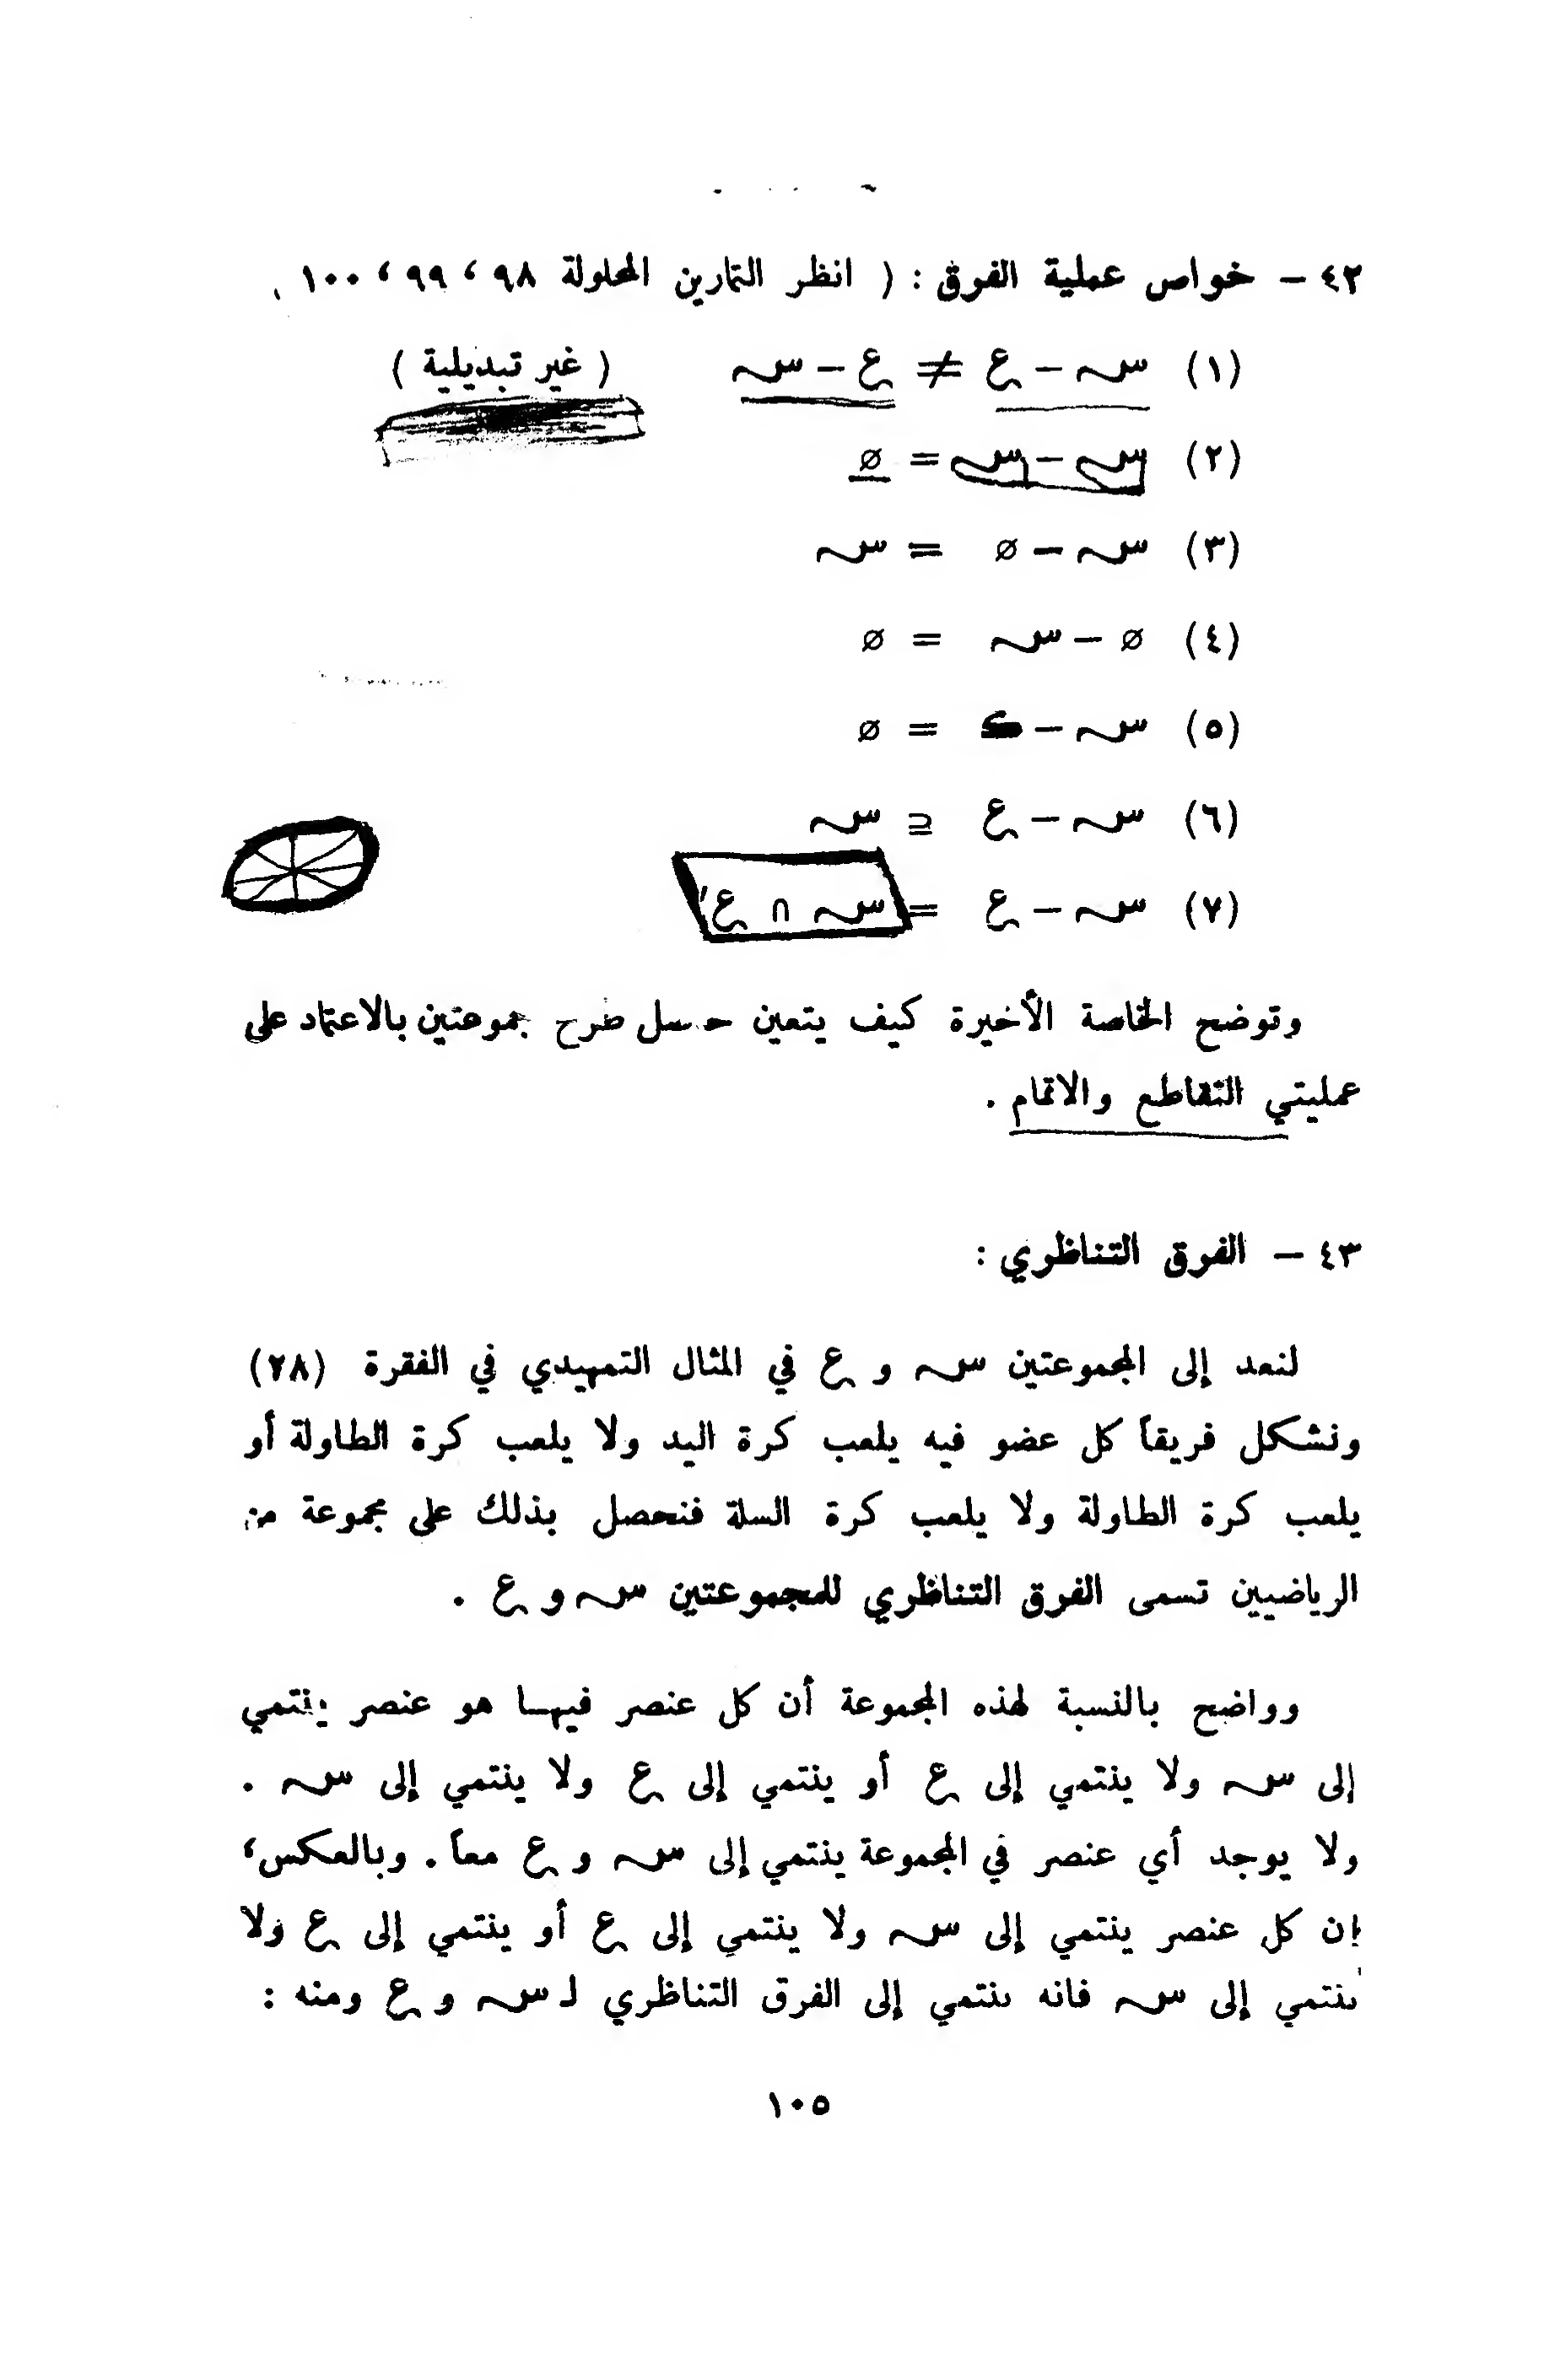 ٤٢ – خواص عملية الفرق : ( انظر التمارين المحلولة ٩٨ ، ٩٩ ، ١٠٠
(١) س – ع ≠ ع – س ( غير تبديلية )
(٢) س – س = ∅
(٣) س – ∅ = س
(٤) ∅ – س = ∅
(٥) س – ك = ∅
(٦) س – ع ⊇ س
(٧) س – ع = س ∩ ع′
وتوضح الخاصة الأخيرة كيف يتعين حاصل طرح مجموعتين بالاعتماد على
عمليتي التقاطع والاتمام .
٤٣ – الفرق التناظري :
لنعد إلى المجموعتين س و ع في المثال التمهيدي في الفقرة (٢٨)
ونشكل فريقاً كل عضو فيه يلعب كرة اليد ولا يلعب كرة الطاولة أو
يلعب كرة الطاولة ولا يلعب كرة السلة فنحصل بذلك على مجموعة من
الرياضيين تسمى الفرق التناظري للمجموعتين س و ع .
وواضح بالنسبة لهذه المجموعة أن كل عنصر فيها هو عنصر ينتمي
إلى س ولا ينتمي إلى ع أو ينتمي إلى ع ولا ينتمي إلى س .
ولا يوجد أي عنصر في المجموعة ينتمي إلى س و ع معاً . وبالعكس ،
إن كل عنصر ينتمي إلى س ولا ينتمي إلى ع أو ينتمي إلى ع ولا
ينتمي إلى س فانه ينتمي إلى الفرق التناظري لـ س و ع ومنه :
١٠٥